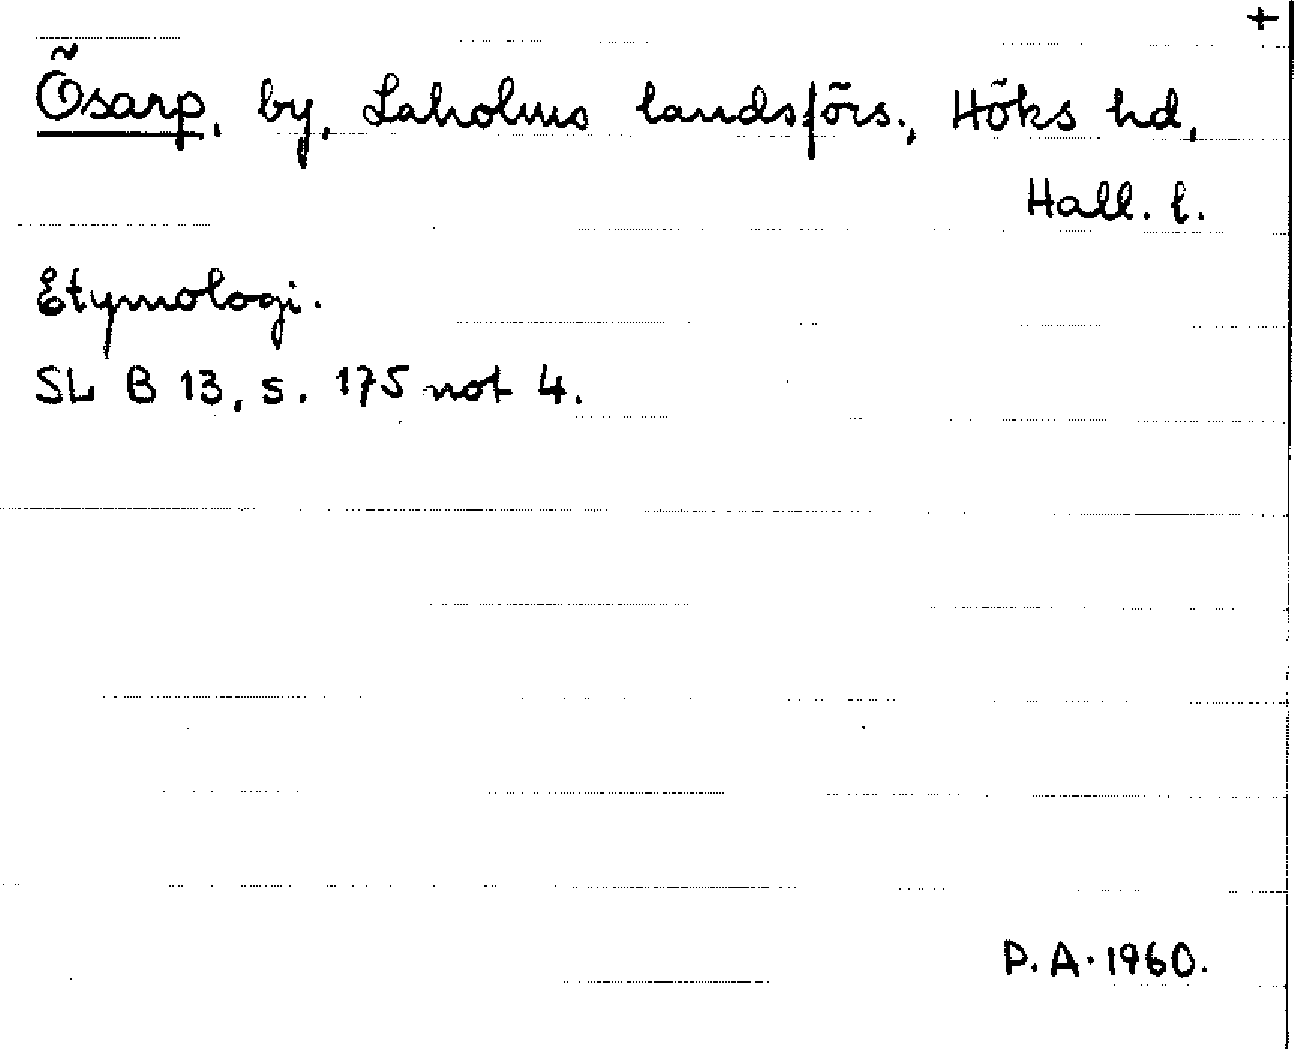 +
Ösarp, by, Laholms landsförs., Höks hd,
Hall. l.
Etymologi.
SL B 13, s. 175 not 4.
P. A. 1960.